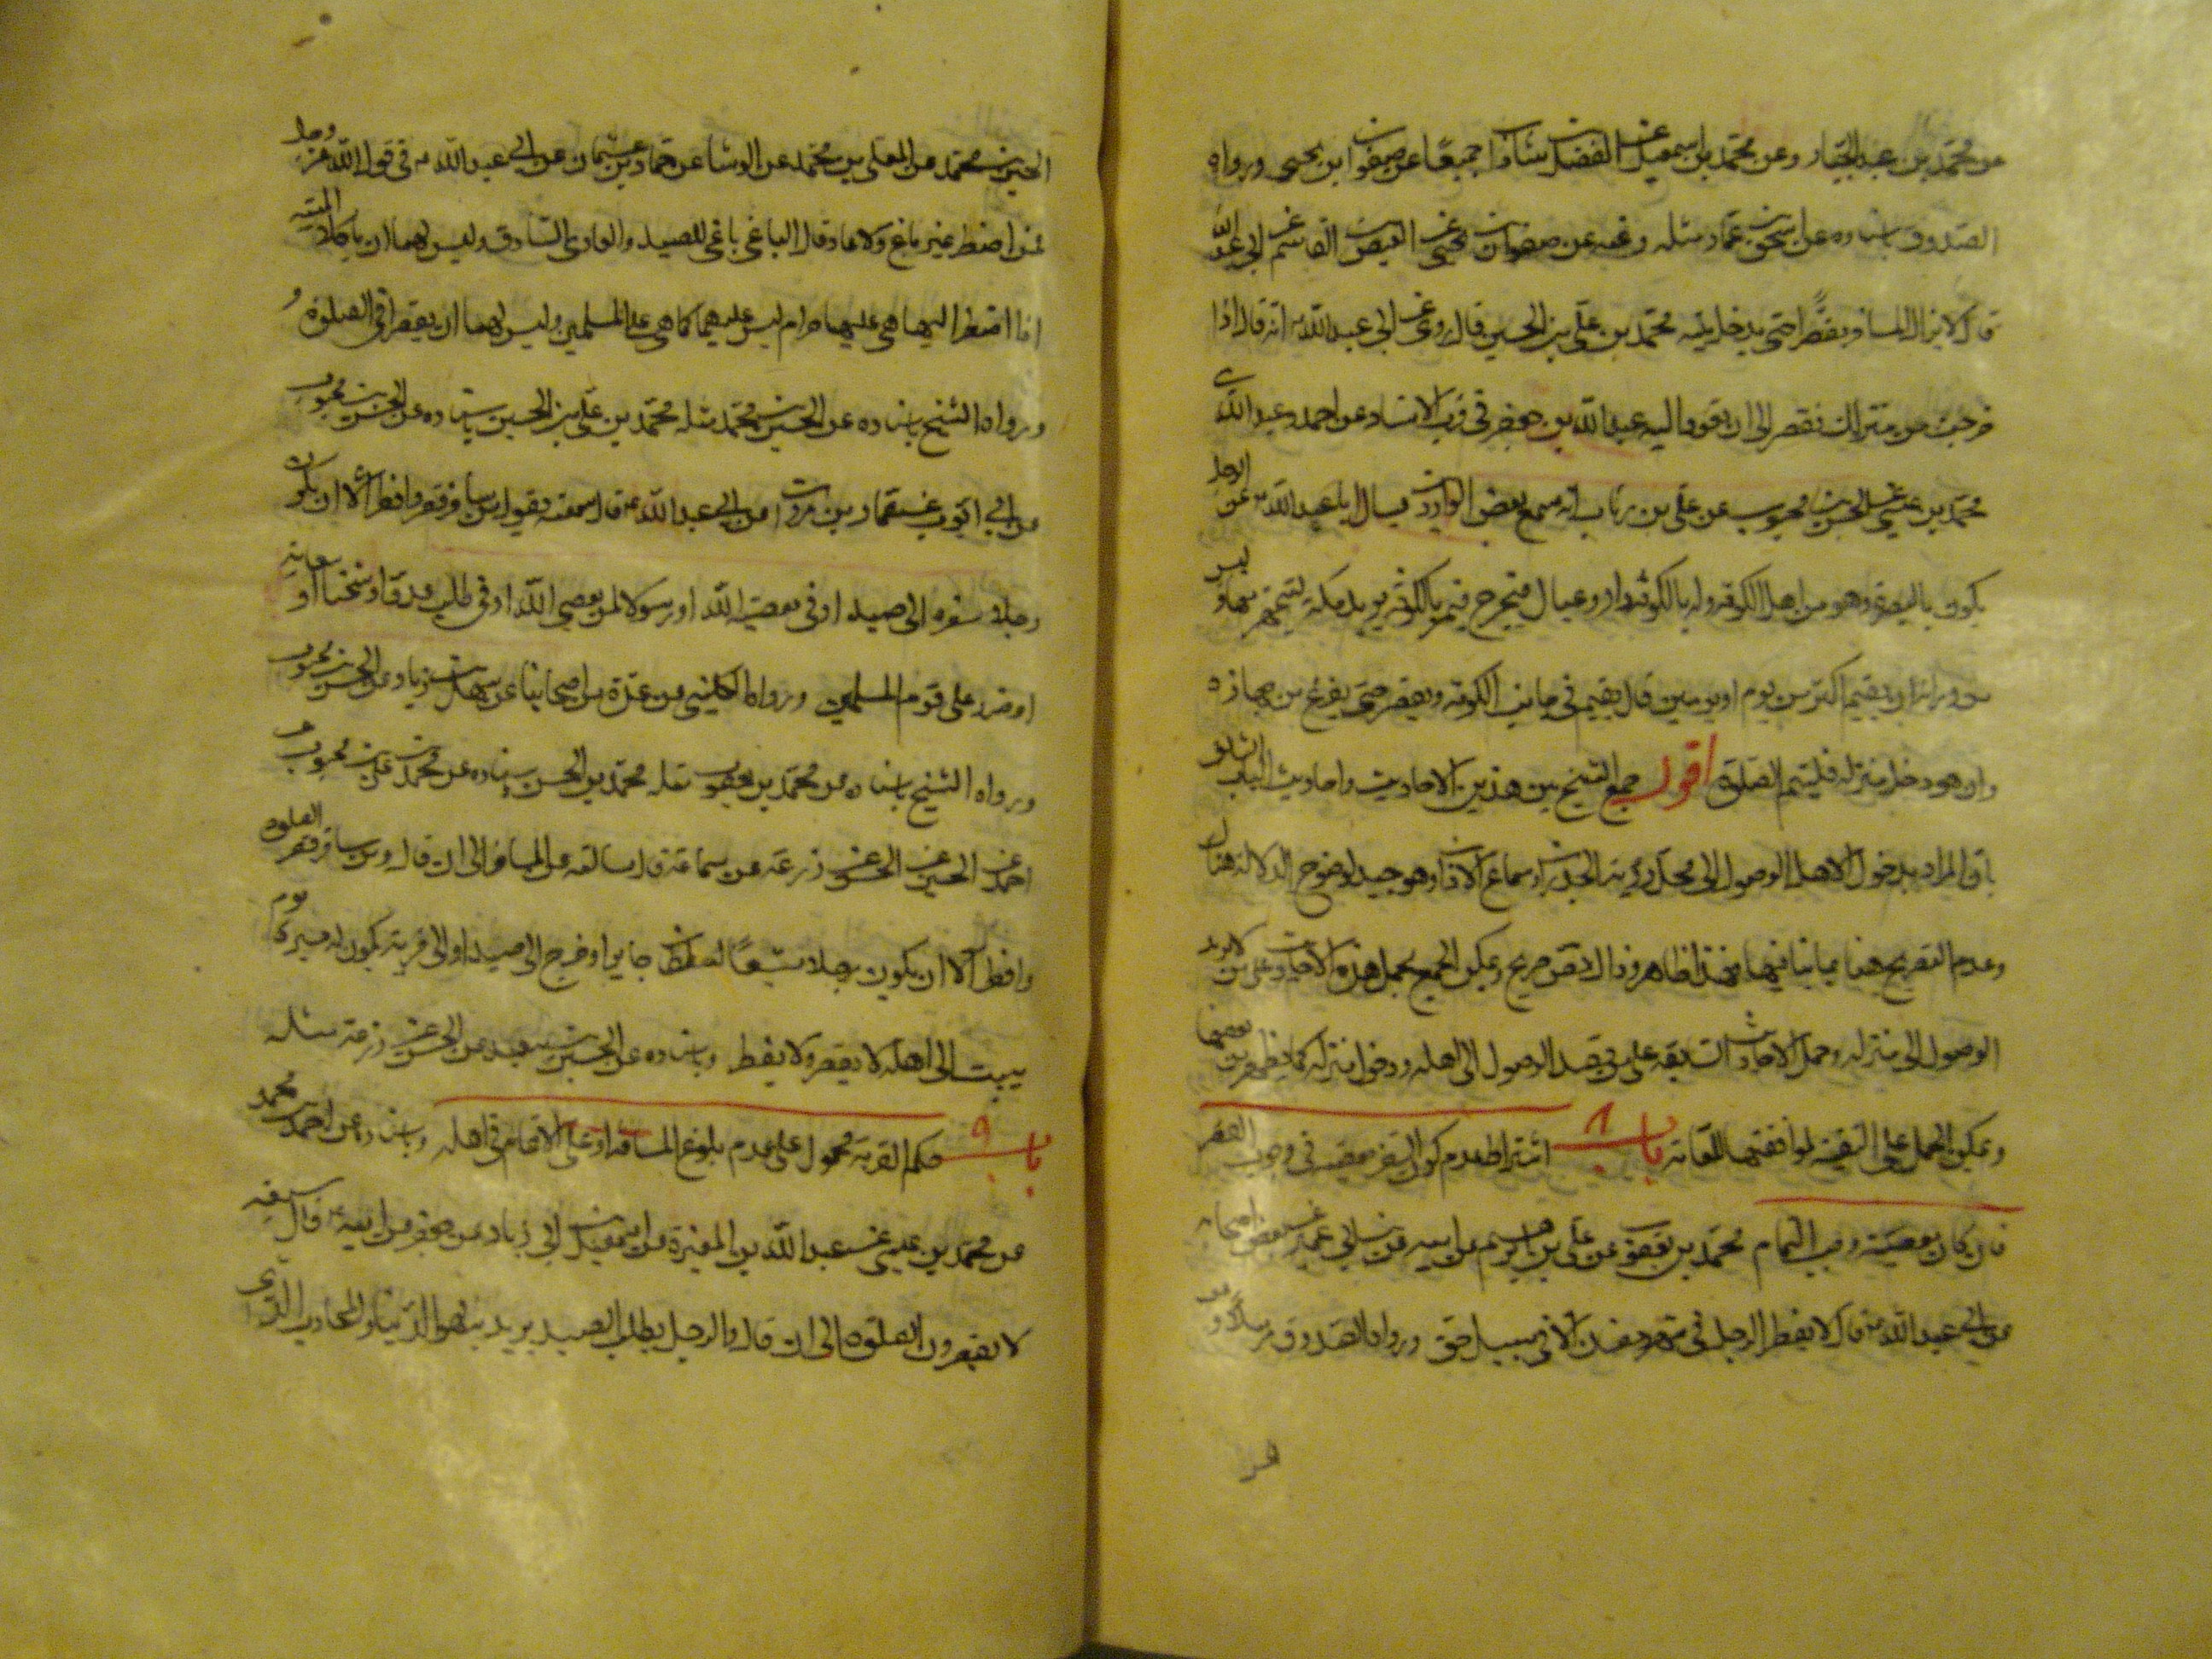 عن محمد بن عبد الجبار وعن محمد بن اسمعيل عن الفضل بن شاذان جميعا عن صفوان بن يحيى ورواه
الصدوق باسناده عن اسحق بن عمار مثله وعنه عن صفوان بن يحيى عن العيص بن القاسم عن ابي عبد الله
قال لا يزال المسافر مقصرا حتى يدخل بيته محمد بن علي بن الحسين قال روى عن ابي عبد الله انه قال اذا
خرجت من منزلك فقصر الى ان تعود اليه عبد الله بن جعفر في قرب الاسناد عن احمد وعبد الله
محمد بن عيسى عن الحسن بن محبوب عن علي بن رئاب انه سمع بعض الواردين يسال ابا عبد الله عن الرجل
يكون بالبصرة وهو من اهل الكوفة وله بالكوفة دار وعيال فيخرج فيمر بالكوفة يريد مكة ليتجهز منها وليس
من رايه ان يقيم اكثر من يوم او يومين قال يقيم في جانب الكوفة ويقصر حتى يفرغ من جهازه
وان هو دخل منزله فليتم الصلوة اقول جمع الشيخ بين هذين الاحاديث واحاديث الباب
بان المراد بدخول الاهل الوصول الى محل رؤية الجدران وسماع الاذان وهو جيد لوضوح الدلالة هناك
وعدم التصريح هنا بما ينافيها فهذا ظاهر وذاك نص صريح ويمكن الجمع بحمل هذه الاحاديث على من لا يريد
الوصول الى منزله وحمل الاحاديث السابقة على من قصد الوصول الى اهله ودخول منزله كما يظهر من بعضها
ويمكن الحمل على التقية لموافقتها للعامة باب ٨ اشتراط عدم كون السفر معصية في وجوب القصر
فان كان معصية وجب التمام محمد بن يعقوب عن علي بن ابرهيم عن ابيه عن ابن ابي عمير عن بعض اصحابه
عن ابي عبد الله قال لا يفطر الرجل في شهر رمضان الا في سبيل حق ورواه الصدوق مرسلا
الحسين بن محمد عن المعلى بن محمد عن الوشا عن حماد بن عثمان عن ابي عبد الله في قول الله عز وجل
فمن اضطر غير باغ ولا عاد قال الباغي باغي الصيد والعادي السارق وليس لهما ان ياكلا الميتة
اذا اضطرا اليها هي عليهما حرام ليس عليهما كما هي على المسلمين وليس لهما ان يقصرا في الصلوة و
ورواه الشيخ باسناده عن الحسين بن محمد مثله محمد بن علي بن الحسين باسناده عن الحسن بن محبوب
عن ابي ايوب عن عمار بن مروان عن ابي عبد الله قال سمعته يقول من سافر قصر وافطر الا ان يكون
رجلا سفره الى صيد او في معصية الله او رسولا لمن يعصي الله او في طلب عدو او شحناء او سعاية
او ضرر على قوم المسلمين ورواه الكليني عن عدة من اصحابنا عن سهل بن زياد عن الحسن بن محبوب
ورواه الشيخ باسناده عن محمد بن يعقوب مثله محمد بن الحسن باسناده عن محمد بن علي بن محبوب عن
احمد عن الحسين عن الحسن عن زرعة عن سماعة قال سالته عن المسافر الى ان قال ومن سافر قصر الصلوة
وافطر الا ان يكون رجلا مشيعا لسلطان جاير او خرج الى صيد او الى قرية له تكون مسيرة يوم
يبيت الى اهله لا يقصر ولا يفطر وباسناده عن الحسين بن سعيد عن الحسن عن زرعة مثله
باب ٩ حكم القرية محمول على عدم بلوغ المسافة او على الاقامة في اهله وباسناده عن احمد بن محمد
عن محمد بن عيسى عن عبد الله بن المغيرة عن اسمعيل بن ابي زياد عن جعفر عن ابيه قال سبعة
لا يقصرون الصلوة الى ان قال والرجل يطلب الصيد يريد به لهو الدنيا والمحارب الذي